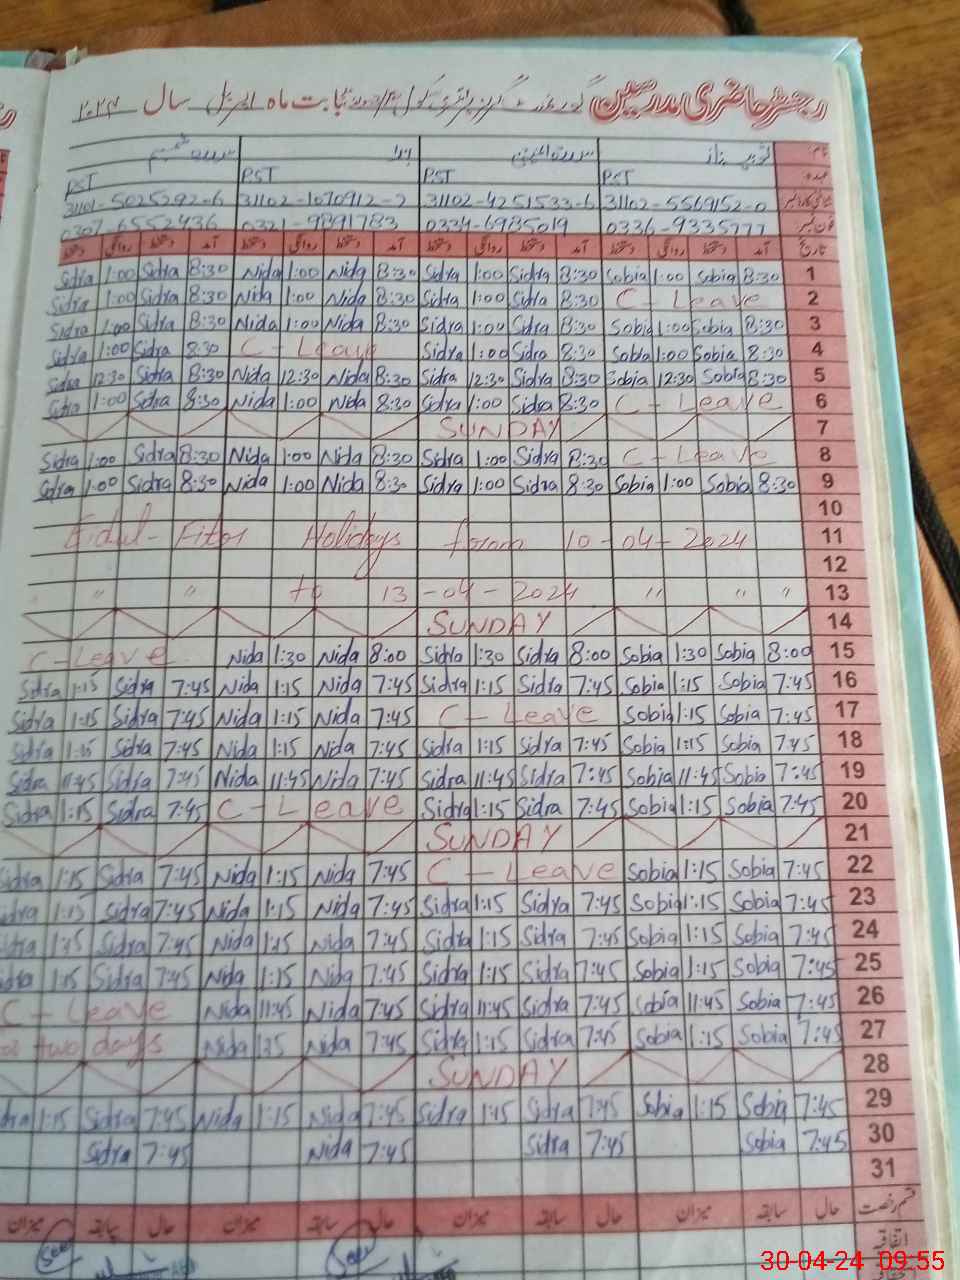 رجسٹر حاضری مدرسین گورنمنٹ گرلز پرائمری سکول بابت ماہ اپریل سال ۲۰۲۴
نام
PST PST PST PST
31101-5025292-6 31102-1070912-2 31102-4251533-6 31102-5569152-0
0307-6552436 0321-9891783 0334-6985019 0336-9335777
دستخط روانگی دستخط آمد دستخط روانگی دستخط آمد دستخط روانگی دستخط آمد دستخط روانگی دستخط آمد تاریخ
Sidra 1:00 Sidra 8:30 Nida 1:00 Nida 8:30 Sidra 1:00 Sidra 8:30 Sobia 1:00 Sobia 8:30 1
Sidra 1:00 Sidra 8:30 Nida 1:00 Nida 8:30 Sidra 1:00 Sidra 8:30 C - Leave 2
Sidra 1:00 Sidra 8:30 Nida 1:00 Nida 8:30 Sidra 1:00 Sidra 8:30 Sobia 1:00 Sobia 8:30 3
Sidra 1:00 Sidra 8:30 C - Leave Sidra 1:00 Sidra 8:30 Sobia 1:00 Sobia 8:30 4
Sidra 12:30 Sidra 8:30 Nida 12:30 Nida 8:30 Sidra 12:30 Sidra 8:30 Sobia 12:30 Sobia 8:30 5
Sidra 1:00 Sidra 8:30 Nida 1:00 Nida 8:30 Sidra 1:00 Sidra 8:30 C - Leave 6
SUNDAY 7
Sidra 1:00 Sidra 8:30 Nida 1:00 Nida 8:30 Sidra 1:00 Sidra 8:30 C - Leave 8
Sidra 1:00 Sidra 8:30 Nida 1:00 Nida 8:30 Sidra 1:00 Sidra 8:30 Sobia 1:00 Sobia 8:30 9
10
Eidul - Fitar Holidays from 10-04-2024 11
12
" " " to 13-04-2024 " " " 13
SUNDAY 14
C - Leave Nida 1:30 Nida 8:00 Sidra 1:30 Sidra 8:00 Sobia 1:30 Sobia 8:00 15
Sidra 1:15 Sidra 7:45 Nida 1:15 Nida 7:45 Sidra 1:15 Sidra 7:45 Sobia 1:15 Sobia 7:45 16
Sidra 1:15 Sidra 7:45 Nida 1:15 Nida 7:45 C - Leave Sobia 1:15 Sobia 7:45 17
Sidra 1:15 Sidra 7:45 Nida 1:15 Nida 7:45 Sidra 1:15 Sidra 7:45 Sobia 1:15 Sobia 7:45 18
Sidra 11:45 Sidra 7:45 Nida 11:45 Nida 7:45 Sidra 11:45 Sidra 7:45 Sobia 11:45 Sobia 7:45 19
Sidra 1:15 Sidra 7:45 C - Leave Sidra 1:15 Sidra 7:45 Sobia 1:15 Sobia 7:45 20
SUNDAY 21
Sidra 1:15 Sidra 7:45 Nida 1:15 Nida 7:45 C - Leave Sobia 1:15 Sobia 7:45 22
Sidra 1:15 Sidra 7:45 Nida 1:15 Nida 7:45 Sidra 1:15 Sidra 7:45 Sobia 1:15 Sobia 7:45 23
Sidra 1:15 Sidra 7:45 Nida 1:15 Nida 7:45 Sidra 1:15 Sidra 7:45 Sobia 1:15 Sobia 7:45 24
Sidra 1:15 Sidra 7:45 Nida 1:15 Nida 7:45 Sidra 1:15 Sidra 7:45 Sobia 1:15 Sobia 7:45 25
C - Leave Nida 11:45 Nida 7:45 Sidra 11:45 Sidra 7:45 Sobia 11:45 Sobia 7:45 26
two days Nida 1:15 Nida 7:45 Sidra 1:15 Sidra 7:45 Sobia 1:15 Sobia 7:45 27
SUNDAY 28
dra 1:15 Sidra 7:45 Nida 1:15 Nida 7:45 Sidra 1:15 Sidra 7:45 Sobia 1:15 Sobia 7:45 29
Sidra 7:45 Nida 7:45 Sidra 7:45 Sobia 7:45 30
31
میزان سابقہ حال میزان سابقہ حال میزان سابقہ حال میزان سابقہ حال قسم رخصت
اتفاقیہ
Seen Seen
30-04-24 09:55